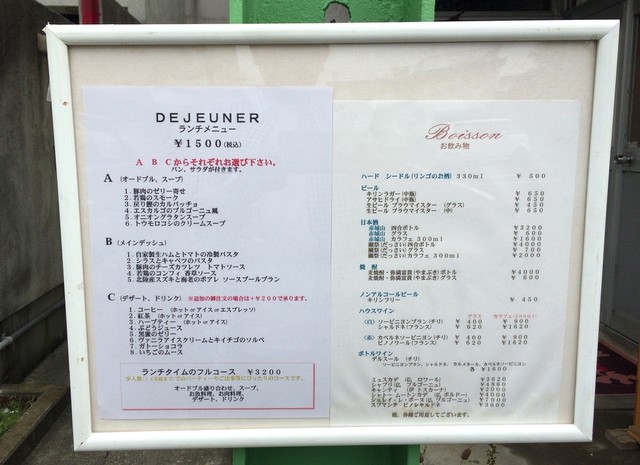 DEJEUNER
ランチメニュー
￥1500(税込)
A B Cからそれぞれお選び下さい。
パン、サラダが付きます。
A (オードブル、スープ)
1．豚肉のゼリー寄せ
2．若鶏のスモーク
3．戻り鰹のカルパッチョ
4．エスカルゴのブルゴーニュ風
5．オニオングラタンスープ
6．トウモロコシのクリームスープ
B (メインデッシュ)
1．自家製生ハムとトマトの冷製パスタ
2．シラスとキャベツのパスタ
3．豚肉のチーズカツレツ トマトソース
4．若鶏のコンフィ 香草ソース
5．北陸産スズキと海老のポアレ ソースブールブラン
C (デザート、ドリンク) ※追加の御注文の場合は+￥200で承ります。
1．コーヒー (ホットorアイスorエスプレッソ)
2．紅茶 (ホットorアイス)
3．ハーブティー (ホットorアイス)
4．ぶどうジュース
5．黒蜜のゼリー
6．ヴァニラアイスクリームとキイチゴのソルベ
7．ガトーショコラ
8．いちごのムース
ランチタイムのフルコース ￥3200
オードブル盛り合わせ、スープ、
お魚料理、お肉料理、
デザート、ドリンク
Boisson
お飲み物
ハード シードル(リンゴのお酒) 330ml ￥ 500
ビール
キリンラガー(中瓶) ￥ 650
アサヒドライ(中瓶) ￥ 650
生ビール ブラウマイスター (グラス) ￥ 450
生ビール ブラウマイスター (中) ￥ 650
日本酒
赤城山 四合ボトル ￥3200
赤城山 グラス ￥ 600
赤城山 カラフェ 300ml ￥1600
獺祭(だっさい)四合ボトル ￥4000
獺祭(だっさい)グラス ￥ 700
獺祭(だっさい)カラフェ 300ml ￥2000
焼 酎
麦焼酎・弥満登貴(やまぶき)ボトル ￥4000
麦焼酎・弥満登貴(やまぶき)グラス ￥ 600
ノンアルコールビール
キリンフリー ￥ 450
ハウスワイン
グラス カラフェ
(白) ソービニヨンブラン(チリ) ￥ 400 ￥ 900
シャルドネ(フランス) ￥ 620 ￥1620
(赤) カベルネソービニヨン(チリ) ￥ 400 ￥ 900
ピノノワール(フランス) ￥ 620 ￥1620
ボトルワイン
デルスール (チリ)
ソービニヨンブラン、シャルドネ、カルメネール、カベルネソービニヨン
各 ￥1600
ミュスカデ (仏 ロワール) ￥3620
シャブリ(仏 ブルゴーニュ)
キャンティ (伊 トスカーナ)
シャトー ムートンカデ (仏 ボルドー)
スプマンテ ピノシャルドネ
他、各種ご用意してございます。